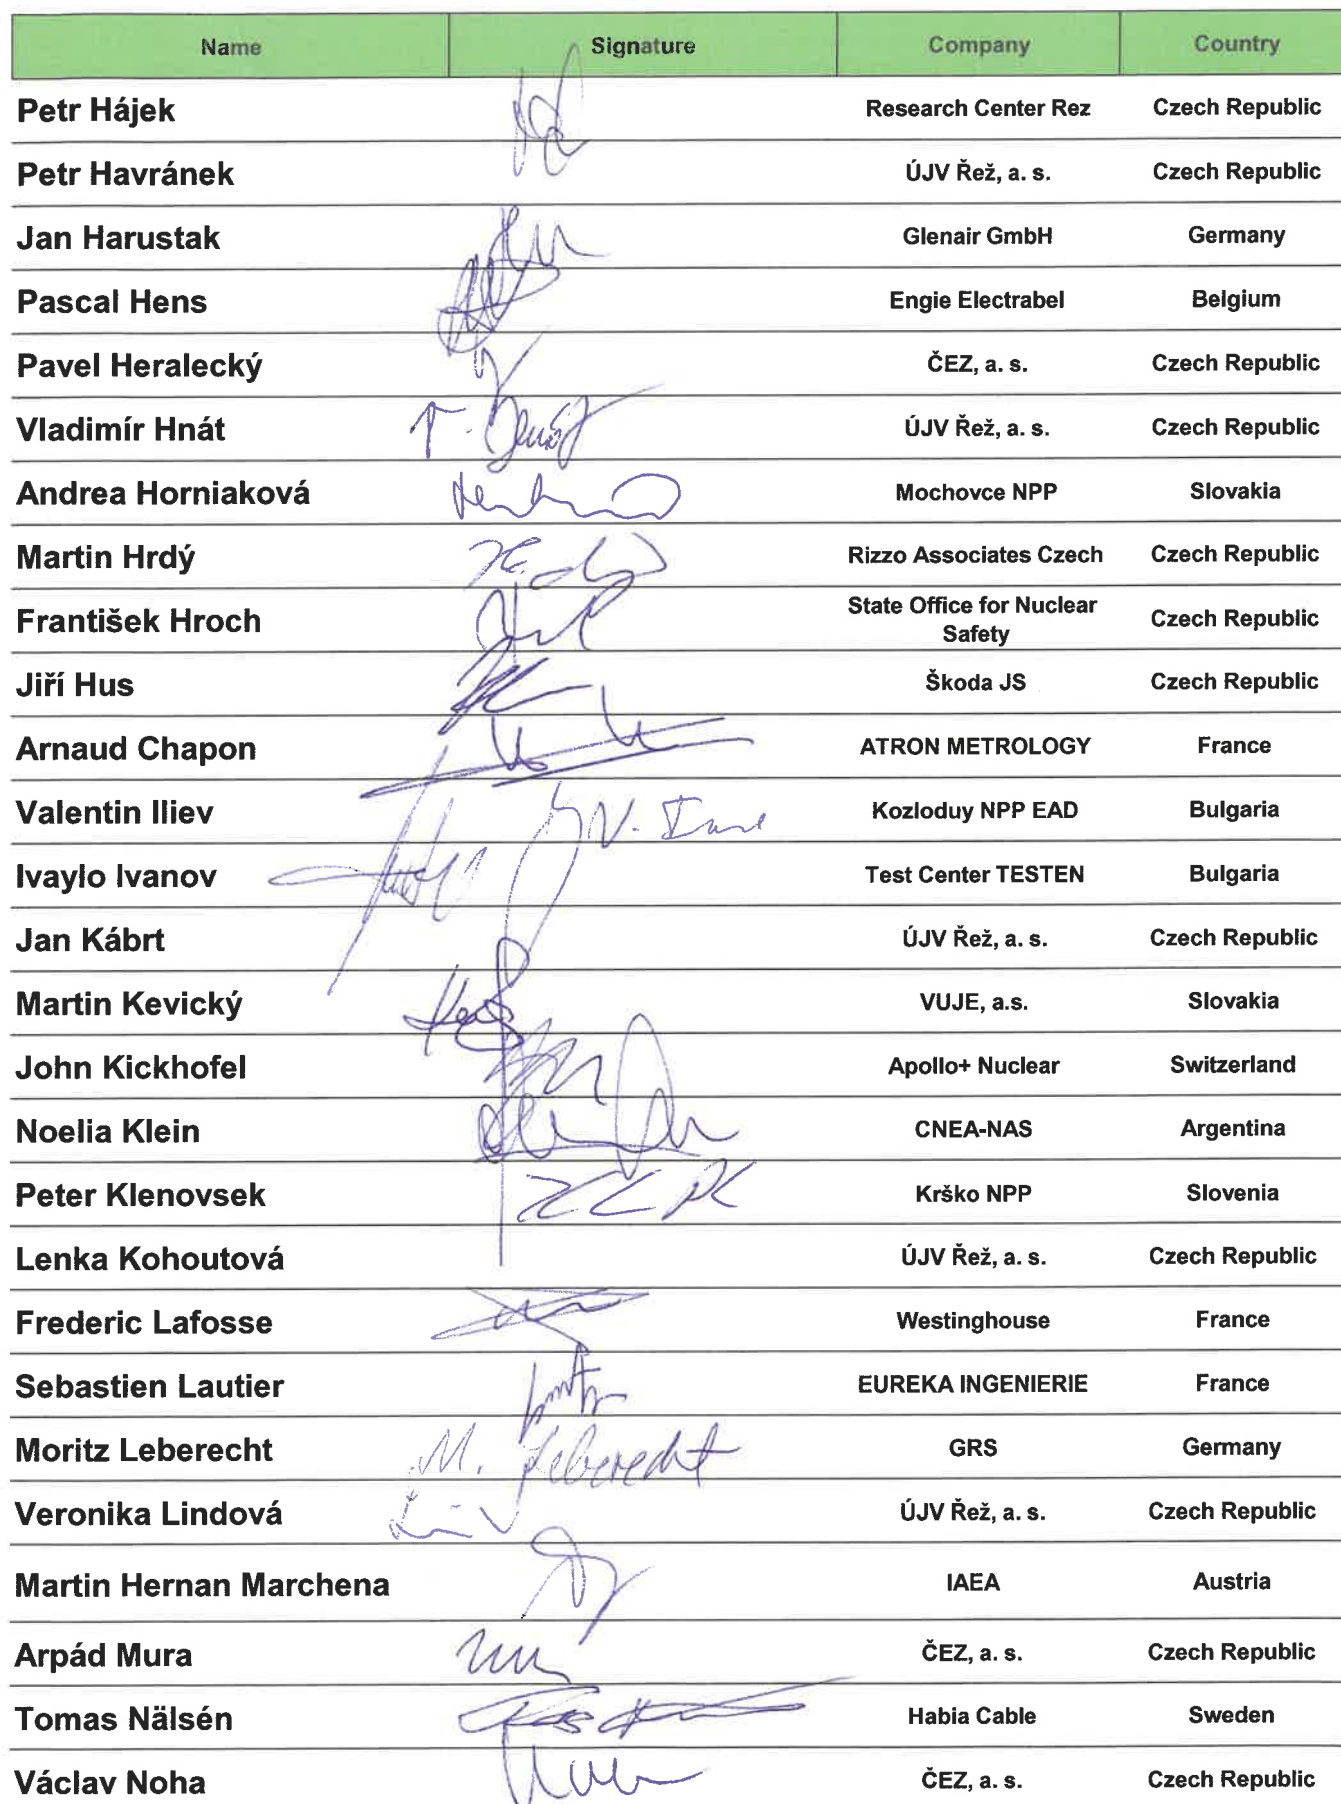 Name Signature Company Country
Petr Hájek Research Center Rez Czech Republic
Petr Havránek ÚJV Řež, a. s. Czech Republic
Jan Harustak Glenair GmbH Germany
Pascal Hens Engie Electrabel Belgium
Pavel Heralecký ČEZ, a. s. Czech Republic
Vladimír Hnát ÚJV Řež, a. s. Czech Republic
Andrea Horniaková Mochovce NPP Slovakia
Martin Hrdý Rizzo Associates Czech Czech Republic
František Hroch State Office for Nuclear Safety Czech Republic
Jiří Hus Škoda JS Czech Republic
Arnaud Chapon ATRON METROLOGY France
Valentin Iliev Kozloduy NPP EAD Bulgaria
Ivaylo Ivanov Test Center TESTEN Bulgaria
Jan Kábrt ÚJV Řež, a. s. Czech Republic
Martin Kevický VUJE, a.s. Slovakia
John Kickhofel Apollo+ Nuclear Switzerland
Noelia Klein CNEA-NAS Argentina
Peter Klenovsek Krško NPP Slovenia
Lenka Kohoutová ÚJV Řež, a. s. Czech Republic
Frederic Lafosse Westinghouse France
Sebastien Lautier EUREKA INGENIERIE France
Moritz Leberecht M. Leberecht GRS Germany
Veronika Lindová ÚJV Řež, a. s. Czech Republic
Martin Hernan Marchena IAEA Austria
Arpád Mura ČEZ, a. s. Czech Republic
Tomas Nälsén Habia Cable Sweden
Václav Noha ČEZ, a. s. Czech Republic